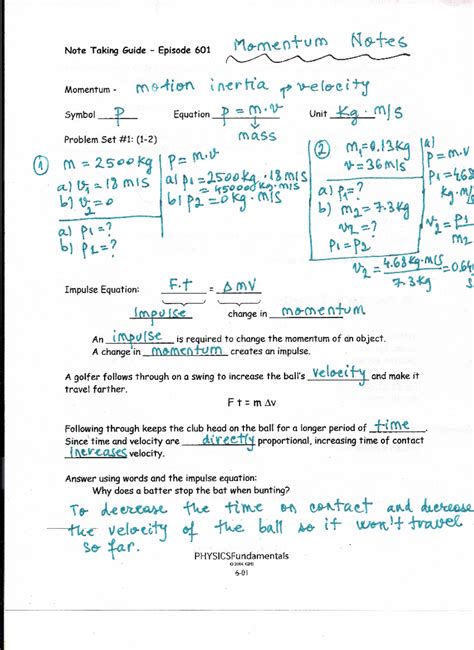 Note Taking Guide - Episode 601 Momentum Notes
Momentum - motion inertia velocity
Symbol p Equation p = m.v Unit kg. m/s
mass
Problem Set #1: (1-2)
① m = 2500kg
a) v₁ = 18 m/s
b) v₂ = 0
a) p₁ = ?
b) p₂ = ?
p = m.v
a) p₁ = 2500kg . 18 m/s
= 45000 kg. m/s
b) p₂ = 0 kg. m/s
② m₁ = 0.13kg
v = 36 m/s
a) p₁ = ?
b) m₂ = 7.3kg
v₂ = ?
p₁ = p₂
a)
p = m.v
p₁ = 4.68
kg. m/
v₂ = p₁
m₂
v₂ = 4.68 kg. m/s = 0.64
7.3kg
Impulse Equation: F.t = Δ mV
Impulse change in momentum
An impulse is required to change the momentum of an object.
A change in momentum creates an impulse.
A golfer follows through on a swing to increase the ball's velocity and make it
travel farther.
F t = m Δv
Following through keeps the club head on the ball for a longer period of time.
Since time and velocity are directly proportional, increasing time of contact
increases velocity.
Answer using words and the impulse equation:
Why does a batter stop the bat when bunting?
To decrease the time on contact and decrease
the velocity of the ball so it won't travel
so far.
PHYSICSFundamentals
6-01